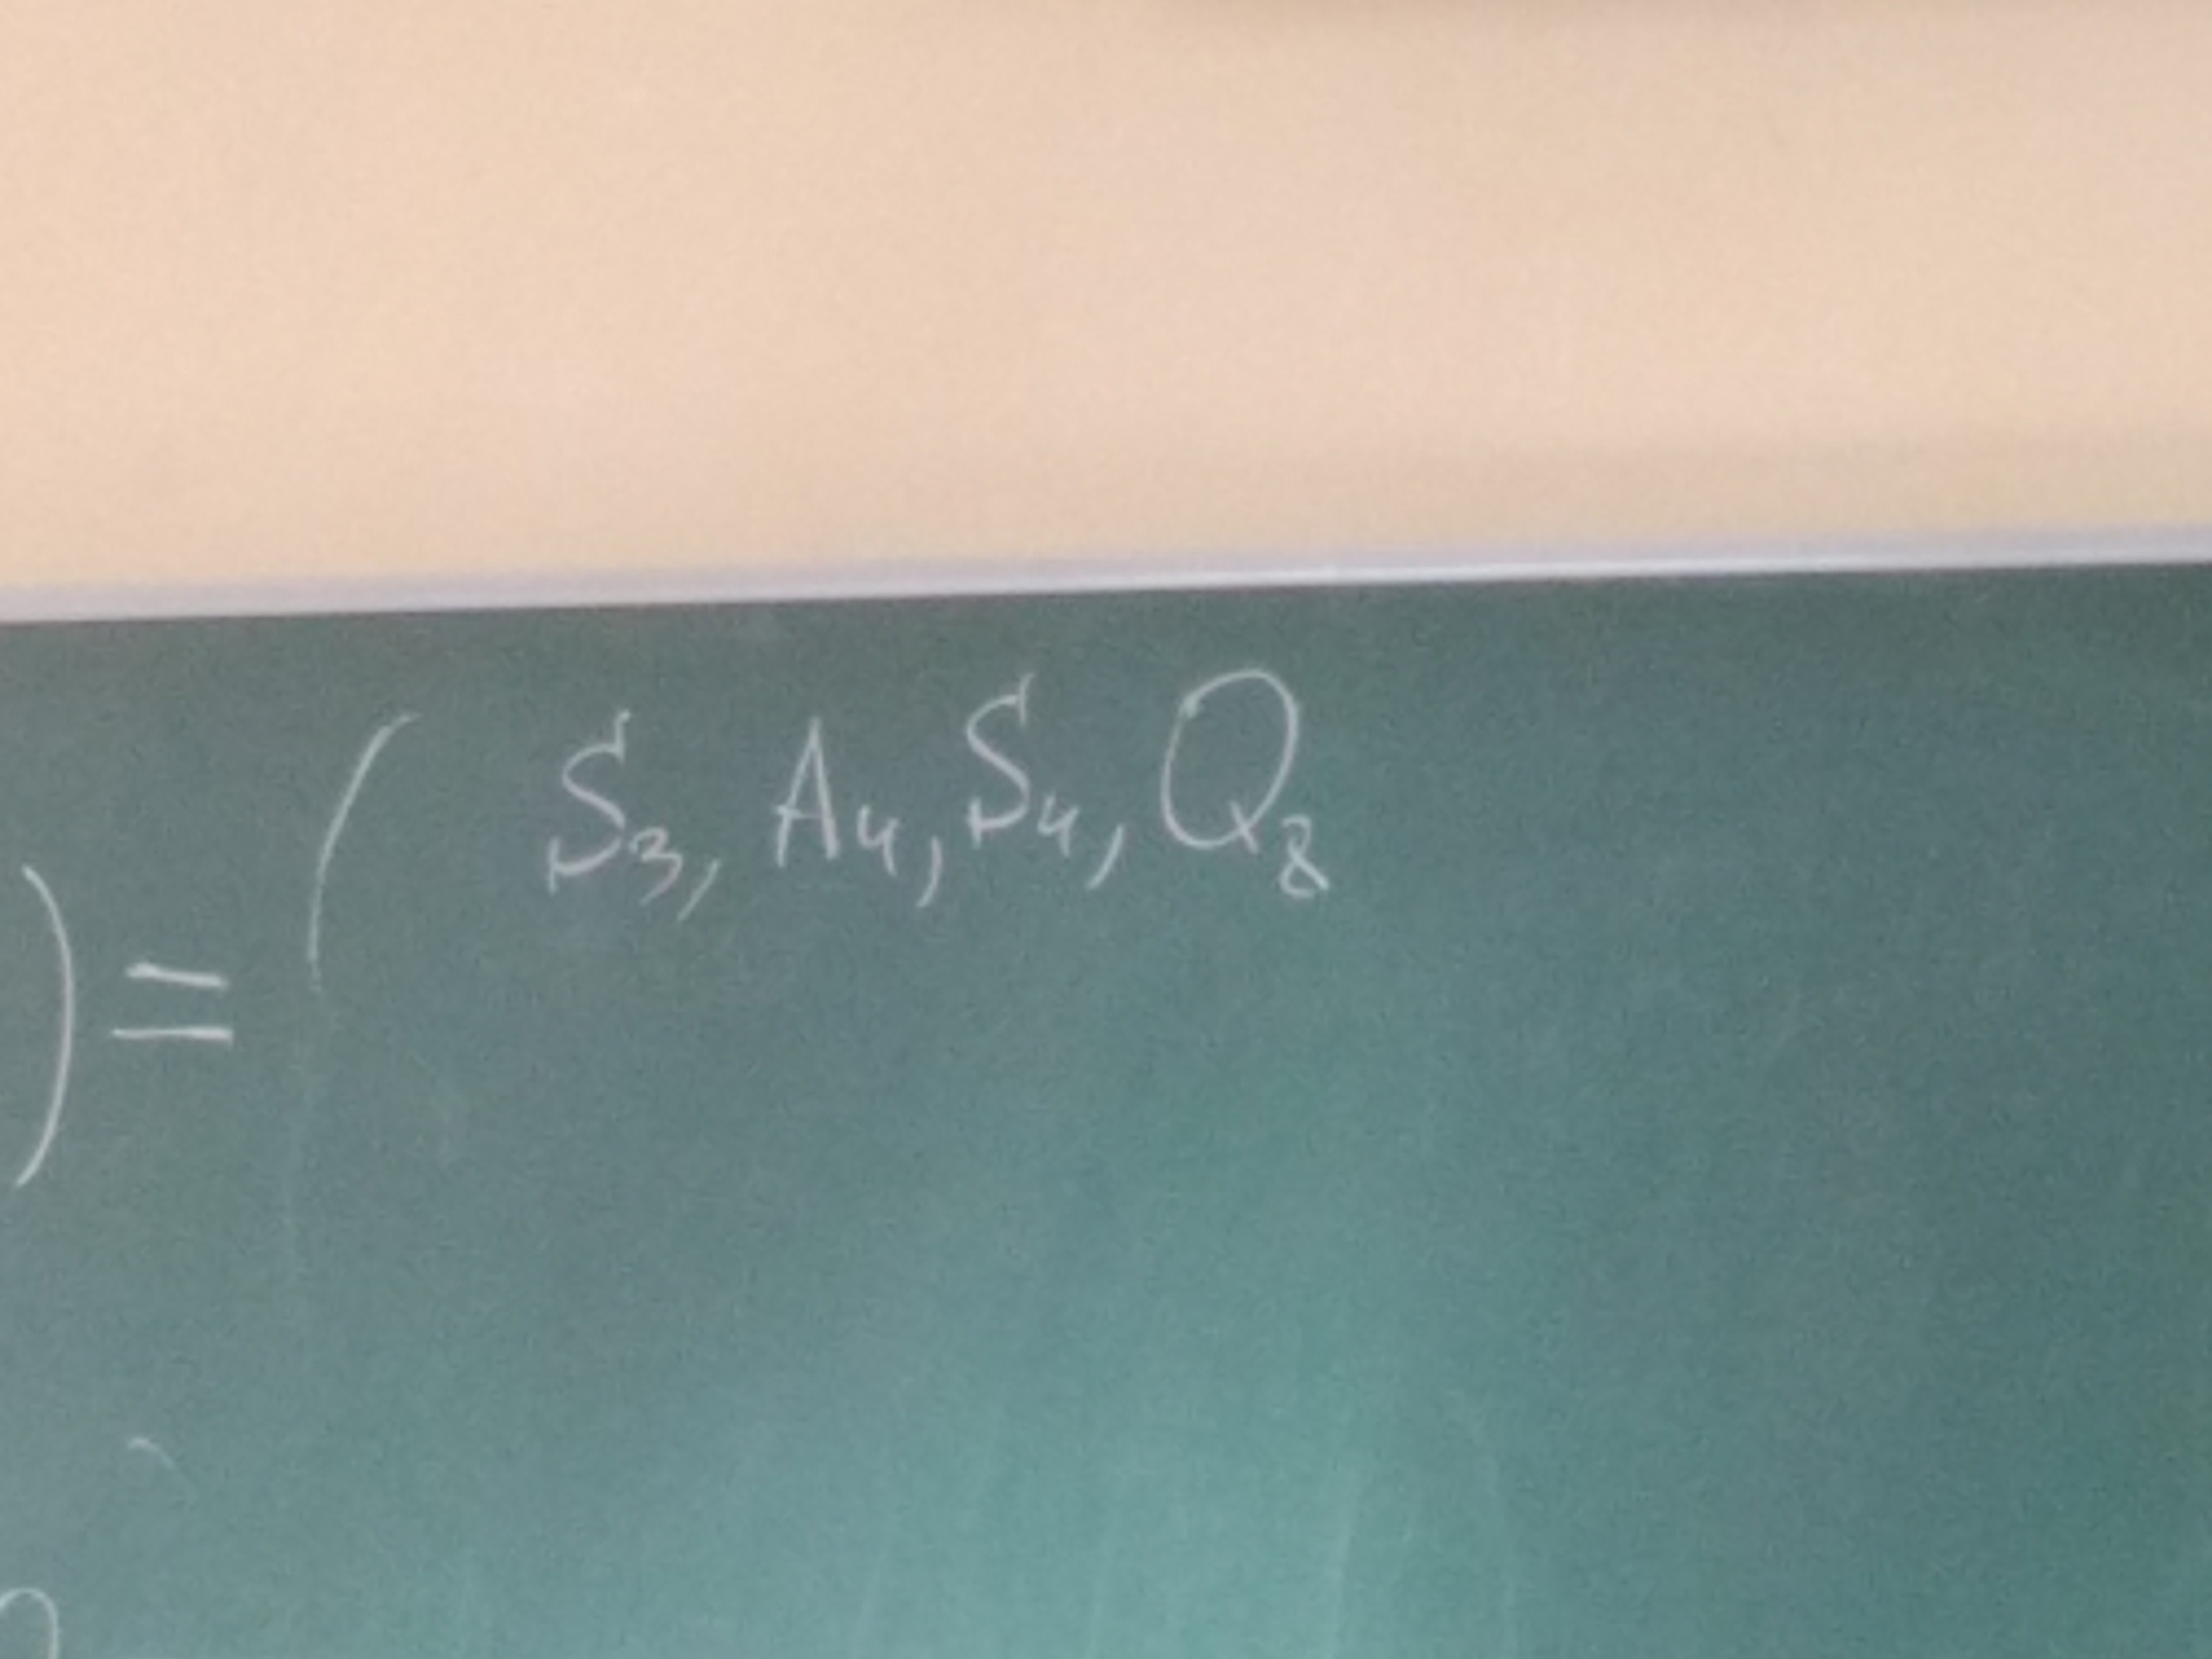 ) = ( S₃, A₄, S₄, Q₈